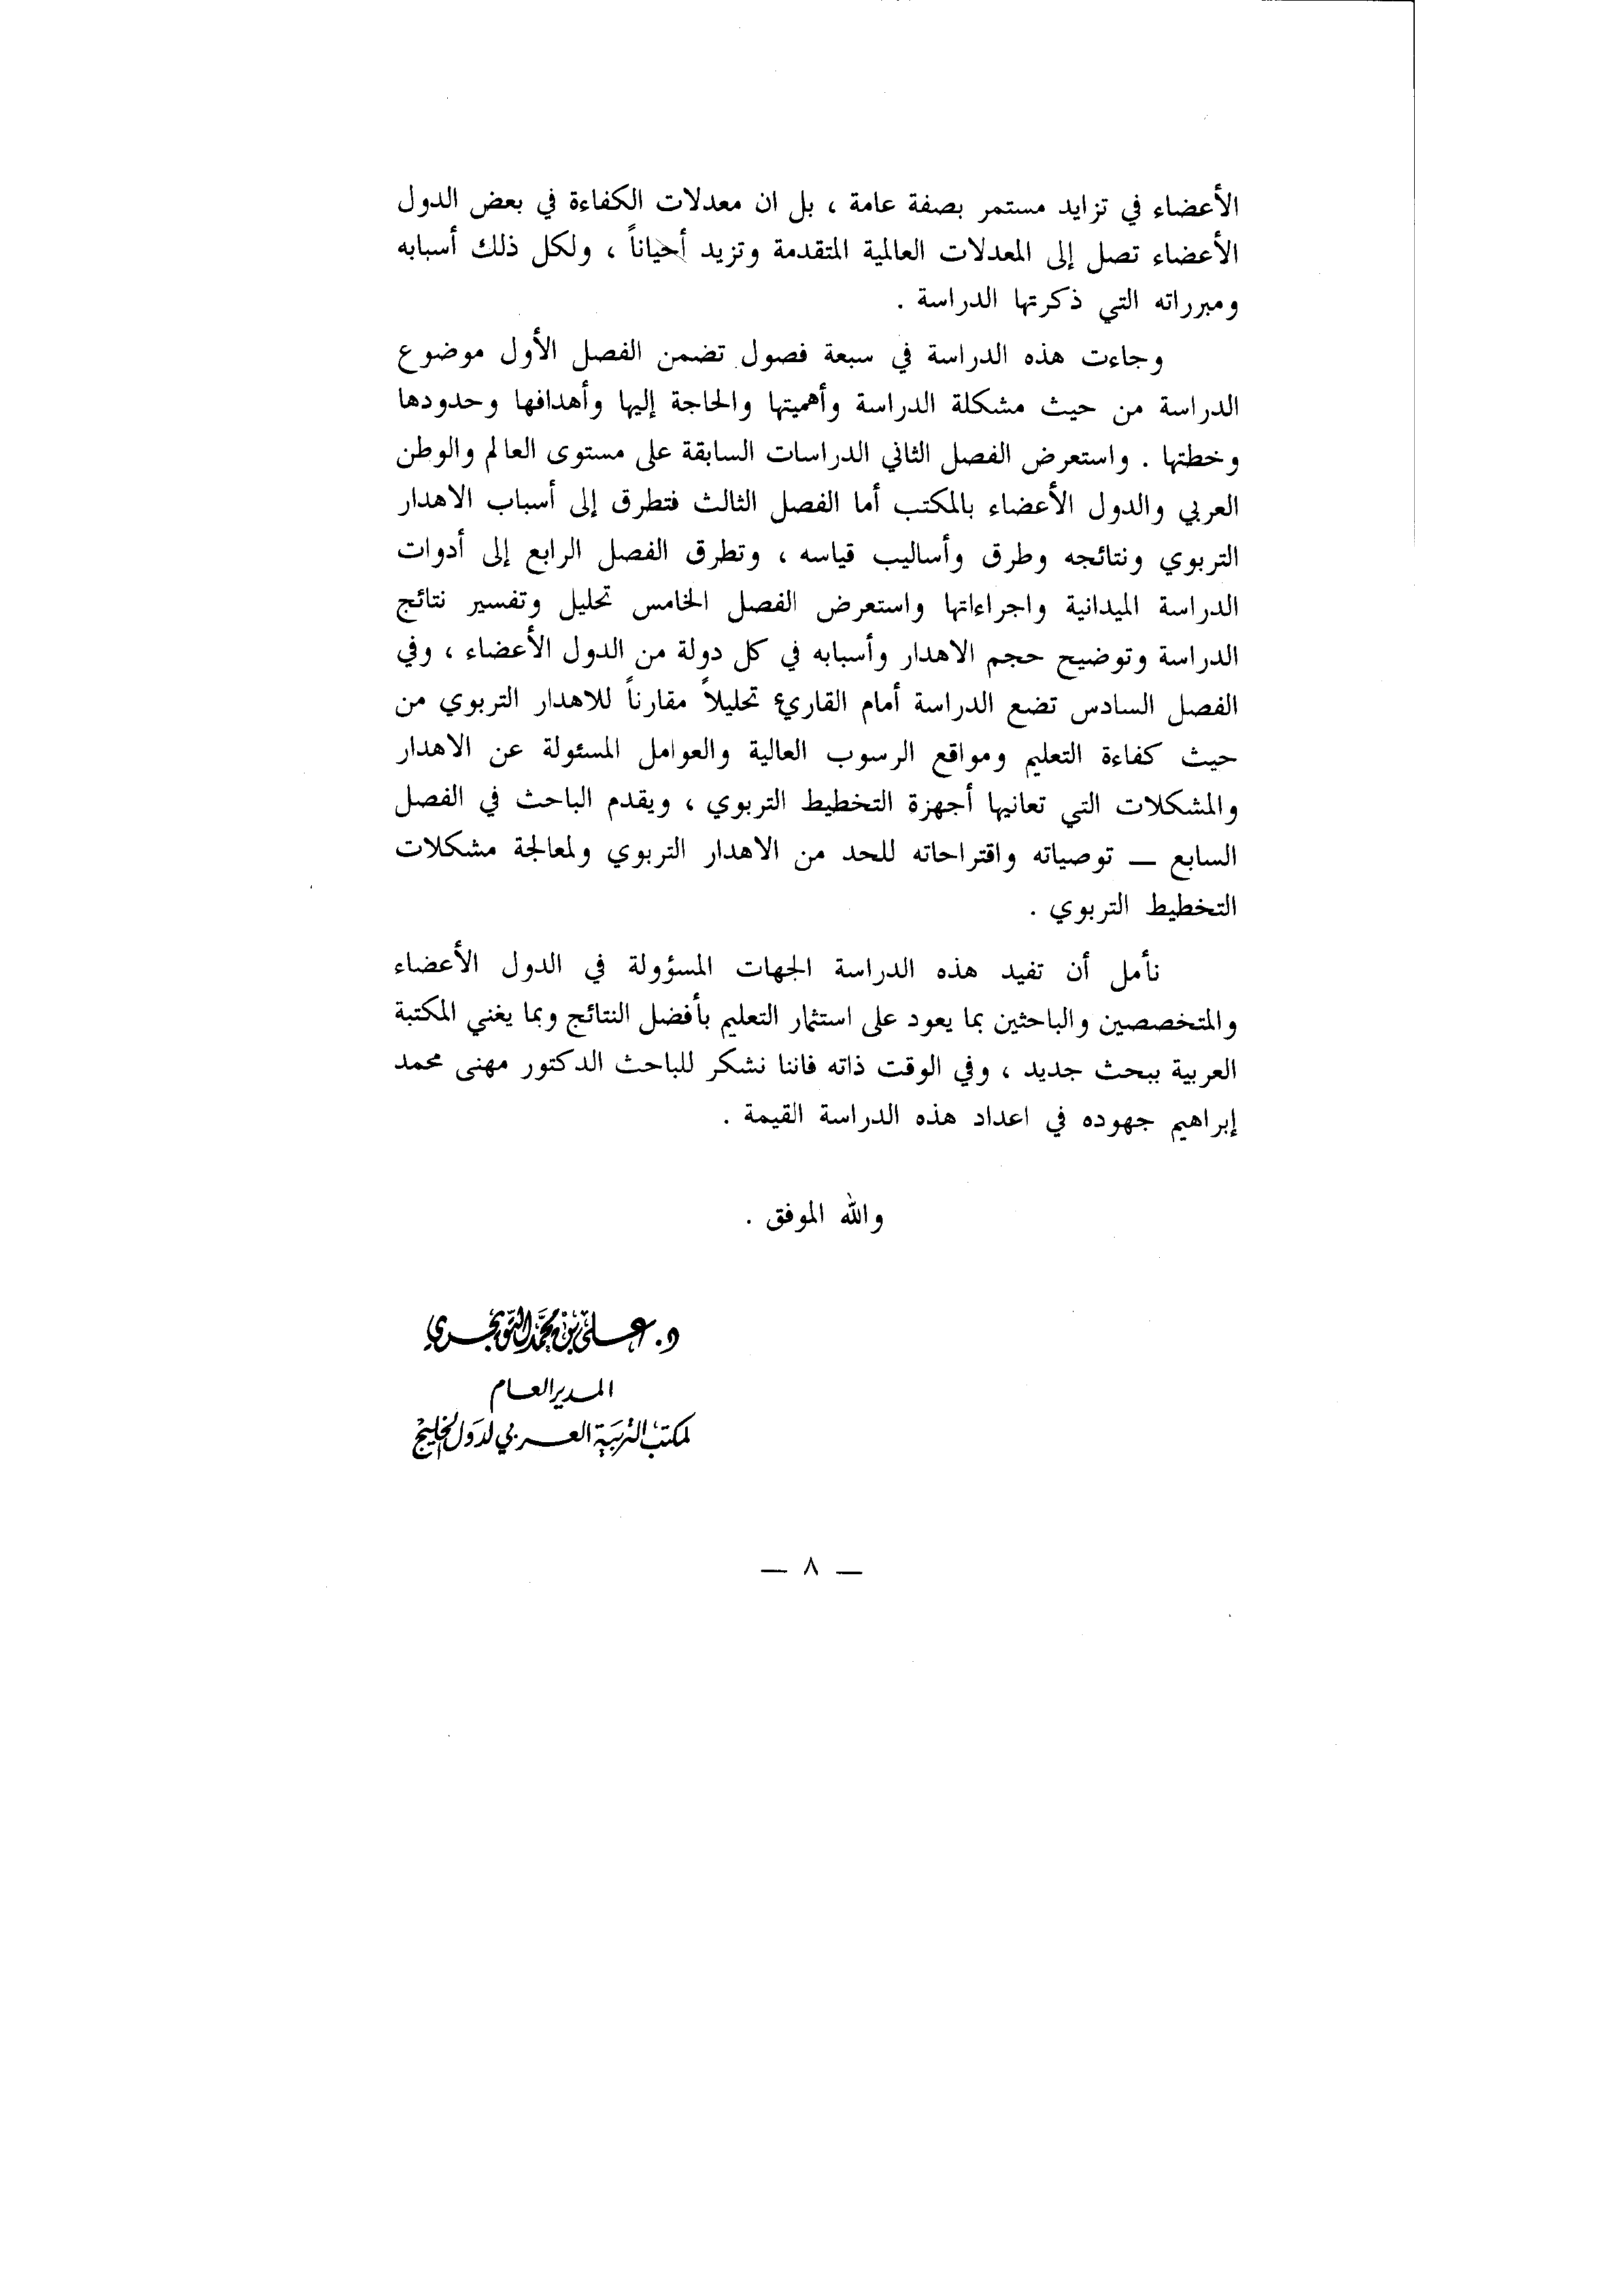 الأعضاء في تزايد مستمر بصفة عامة ، بل ان معدلات الكفاءة في بعض الدول
الأعضاء تصل إلى المعدلات العالمية المتقدمة وتزيد أحياناً ، ولكل ذلك أسبابه
ومبرراته التي ذكرتها الدراسة .
وجاءت هذه الدراسة في سبعة فصول تضمن الفصل الأول موضوع
الدراسة من حيث مشكلة الدراسة وأهميتها والحاجة إليها وأهدافها وحدودها
وخطتها . واستعرض الفصل الثاني الدراسات السابقة على مستوى العالم والوطن
العربي والدول الأعضاء بالمكتب أما الفصل الثالث فتطرق إلى أسباب الاهدار
التربوي ونتائجه وطرق وأساليب قياسه ، وتطرق الفصل الرابع إلى أدوات
الدراسة الميدانية واجراءاتها واستعرض الفصل الخامس تحليل وتفسير نتائج
الدراسة وتوضيح حجم الاهدار وأسبابه في كل دولة من الدول الأعضاء ، وفي
الفصل السادس تضع الدراسة أمام القاريء تحليلاً مقارناً للاهدار التربوي من
حيث كفاءة التعليم ومواقع الرسوب العالية والعوامل المسئولة عن الاهدار
والمشكلات التي تعانيها أجهزة التخطيط التربوي ، ويقدم الباحث في الفصل
السابع — توصياته واقتراحاته للحد من الاهدار التربوي ولمعالجة مشكلات
التخطيط التربوي .
نأمل أن تفيد هذه الدراسة الجهات المسؤولة في الدول الأعضاء
والمتخصصين والباحثين بما يعود على استثمار التعليم بأفضل النتائج وبما يغني المكتبة
العربية ببحث جديد ، وفي الوقت ذاته فاننا نشكر للباحث الدكتور مهنى محمد
إبراهيم جهوده في اعداد هذه الدراسة القيمة .
والله الموفق .
د. علي بن محمد التويجري
المدير العام
لمكتب التربية العربي لدول الخليج
— ٨ —